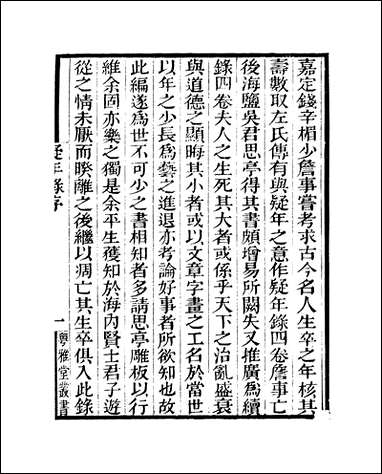 嘉定錢辛楣少詹事嘗考求古今名人生卒之年核其
壽數取左氏傳有與疑年之意作疑年錄四卷詹事亡
後海鹽吳君思亭得其書頗增易所闕失又推廣爲續
錄四卷夫人之生死其大者或係乎天下之治亂盛衰
與道德之顯晦其小者或以文章字畫之工名於當世
以年之少長爲藝之進退亦考論好事者所欲知也故
此編遂爲世不可少之書相知者多請思亭雕板以行
維余固亦樂之獨是余平生獲知於海內賢士君子遊
從之情未厭而暌離之後繼以凋亡其生卒俱入此錄
疑年錄序
一
粵雅堂叢書